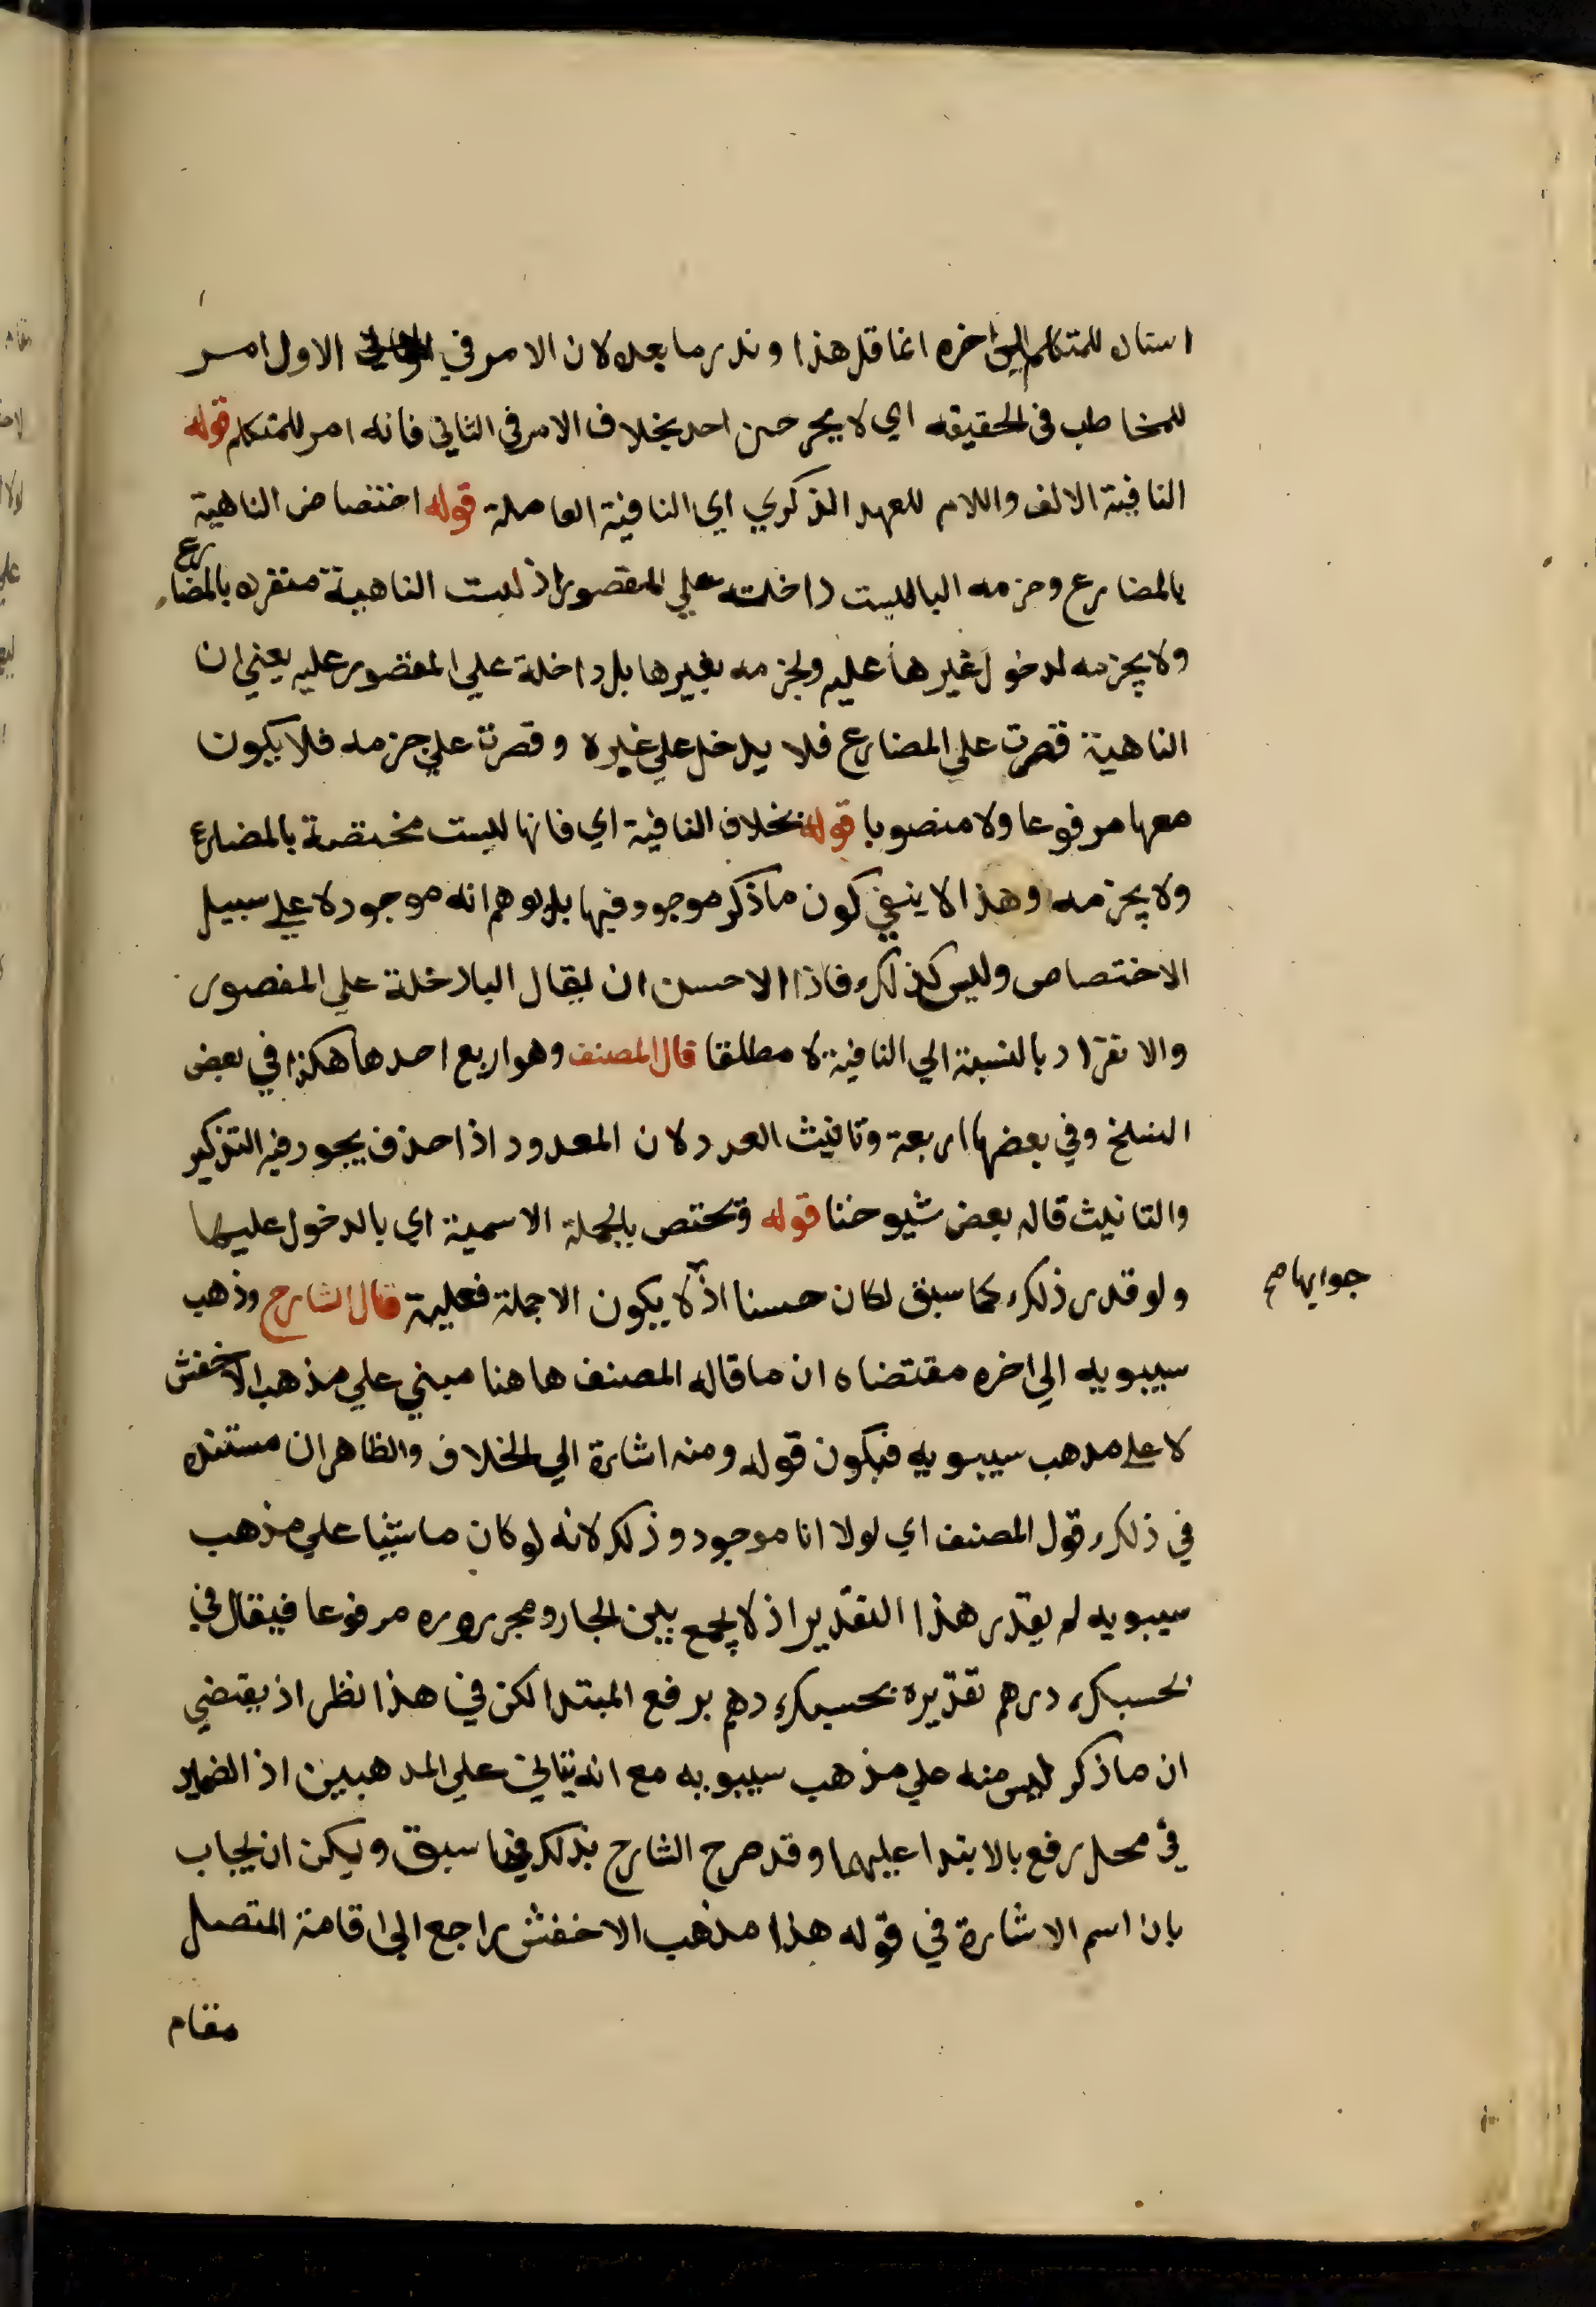 اسناد للمتكلم الي اخره انما قل هذا وندر ما بعده لان الامر في الاول امر
للمخاطب في الحقيقه اي لا يجر حسن احد بخلاف الامر في الثاني فانه امر للمتكلم قوله
النافية الالف واللام للعهد الذكري اي النافية العاملة قوله اختصاص الناهية
بالمضارع وجزمه البا ليست داخلة علي المقصور اذ ليست الناهية منفرده بالمضارع
ولا بجزمه لدخول غيرها عليه ولجزمه بغيرها بل داخلة علي المقصور عليه يعني ان
الناهية قصرت علي المضارع فلا يدخل علي غيره وقصرت علي جزمه فلا يكون
معها مرفوعا ولا منصوبا قوله بخلاف النافية اي فانها ليست مختصة بالمضارع
ولا بجزمه وهذا لا ينفي كون ما ذكر موجود فيها بل يوهم انه موجود لا علي سبيل
الاختصاص وليس كذلك فاذا الاحسن ان يقال البا داخلة علي المقصور
والانفراد بالنسبة الي النافية لا مطلقا قال المصنف وهو اربع احدها هكذا في بعض
النسخ وفي بعضها اربعة وتانيث العدد لان المعدود اذا حذف يجوز فيه التذكير
والتانيث قاله بعض شيوخنا قوله وتختص بالجملة الاسمية اي بالدخول عليها
ولو قدر ذلك كما سبق لكان حسنا اذ لا يكون الا جملة فعلية قال الشارح وذهب
جوابها صح
سيبويه الي اخره مقتضاه ان ما قاله المصنف هاهنا مبني علي مذهب الاخفش
لا علي مذهب سيبويه فيكون قوله ومنه اشارة الي الخلاف والظاهر ان مستنده
في ذلك قول المصنف اي لولا انا موجود وذلك لانه لو كان ماشيا علي مذهب
سيبويه لم يقدر هذا التقدير اذ لا يجمع بين الجار ومجروره مرفوعا فيقال في
بحسبك درهم تقديره بحسبك درهم برفع المبتدا لكن في هذا نظر اذ يقتضي
ان ما ذكر ليس منه علي مذهب سيبويه مع انه يتاتي علي المذهبين اذ الضمير
في محل رفع بالابتدا عليهما وقد صرح الشارح بذلك فيما سبق ويمكن ان يجاب
بان اسم الاشارة في قوله هذا مذهب الاخفش راجع الي اقامة المتصل
مقام